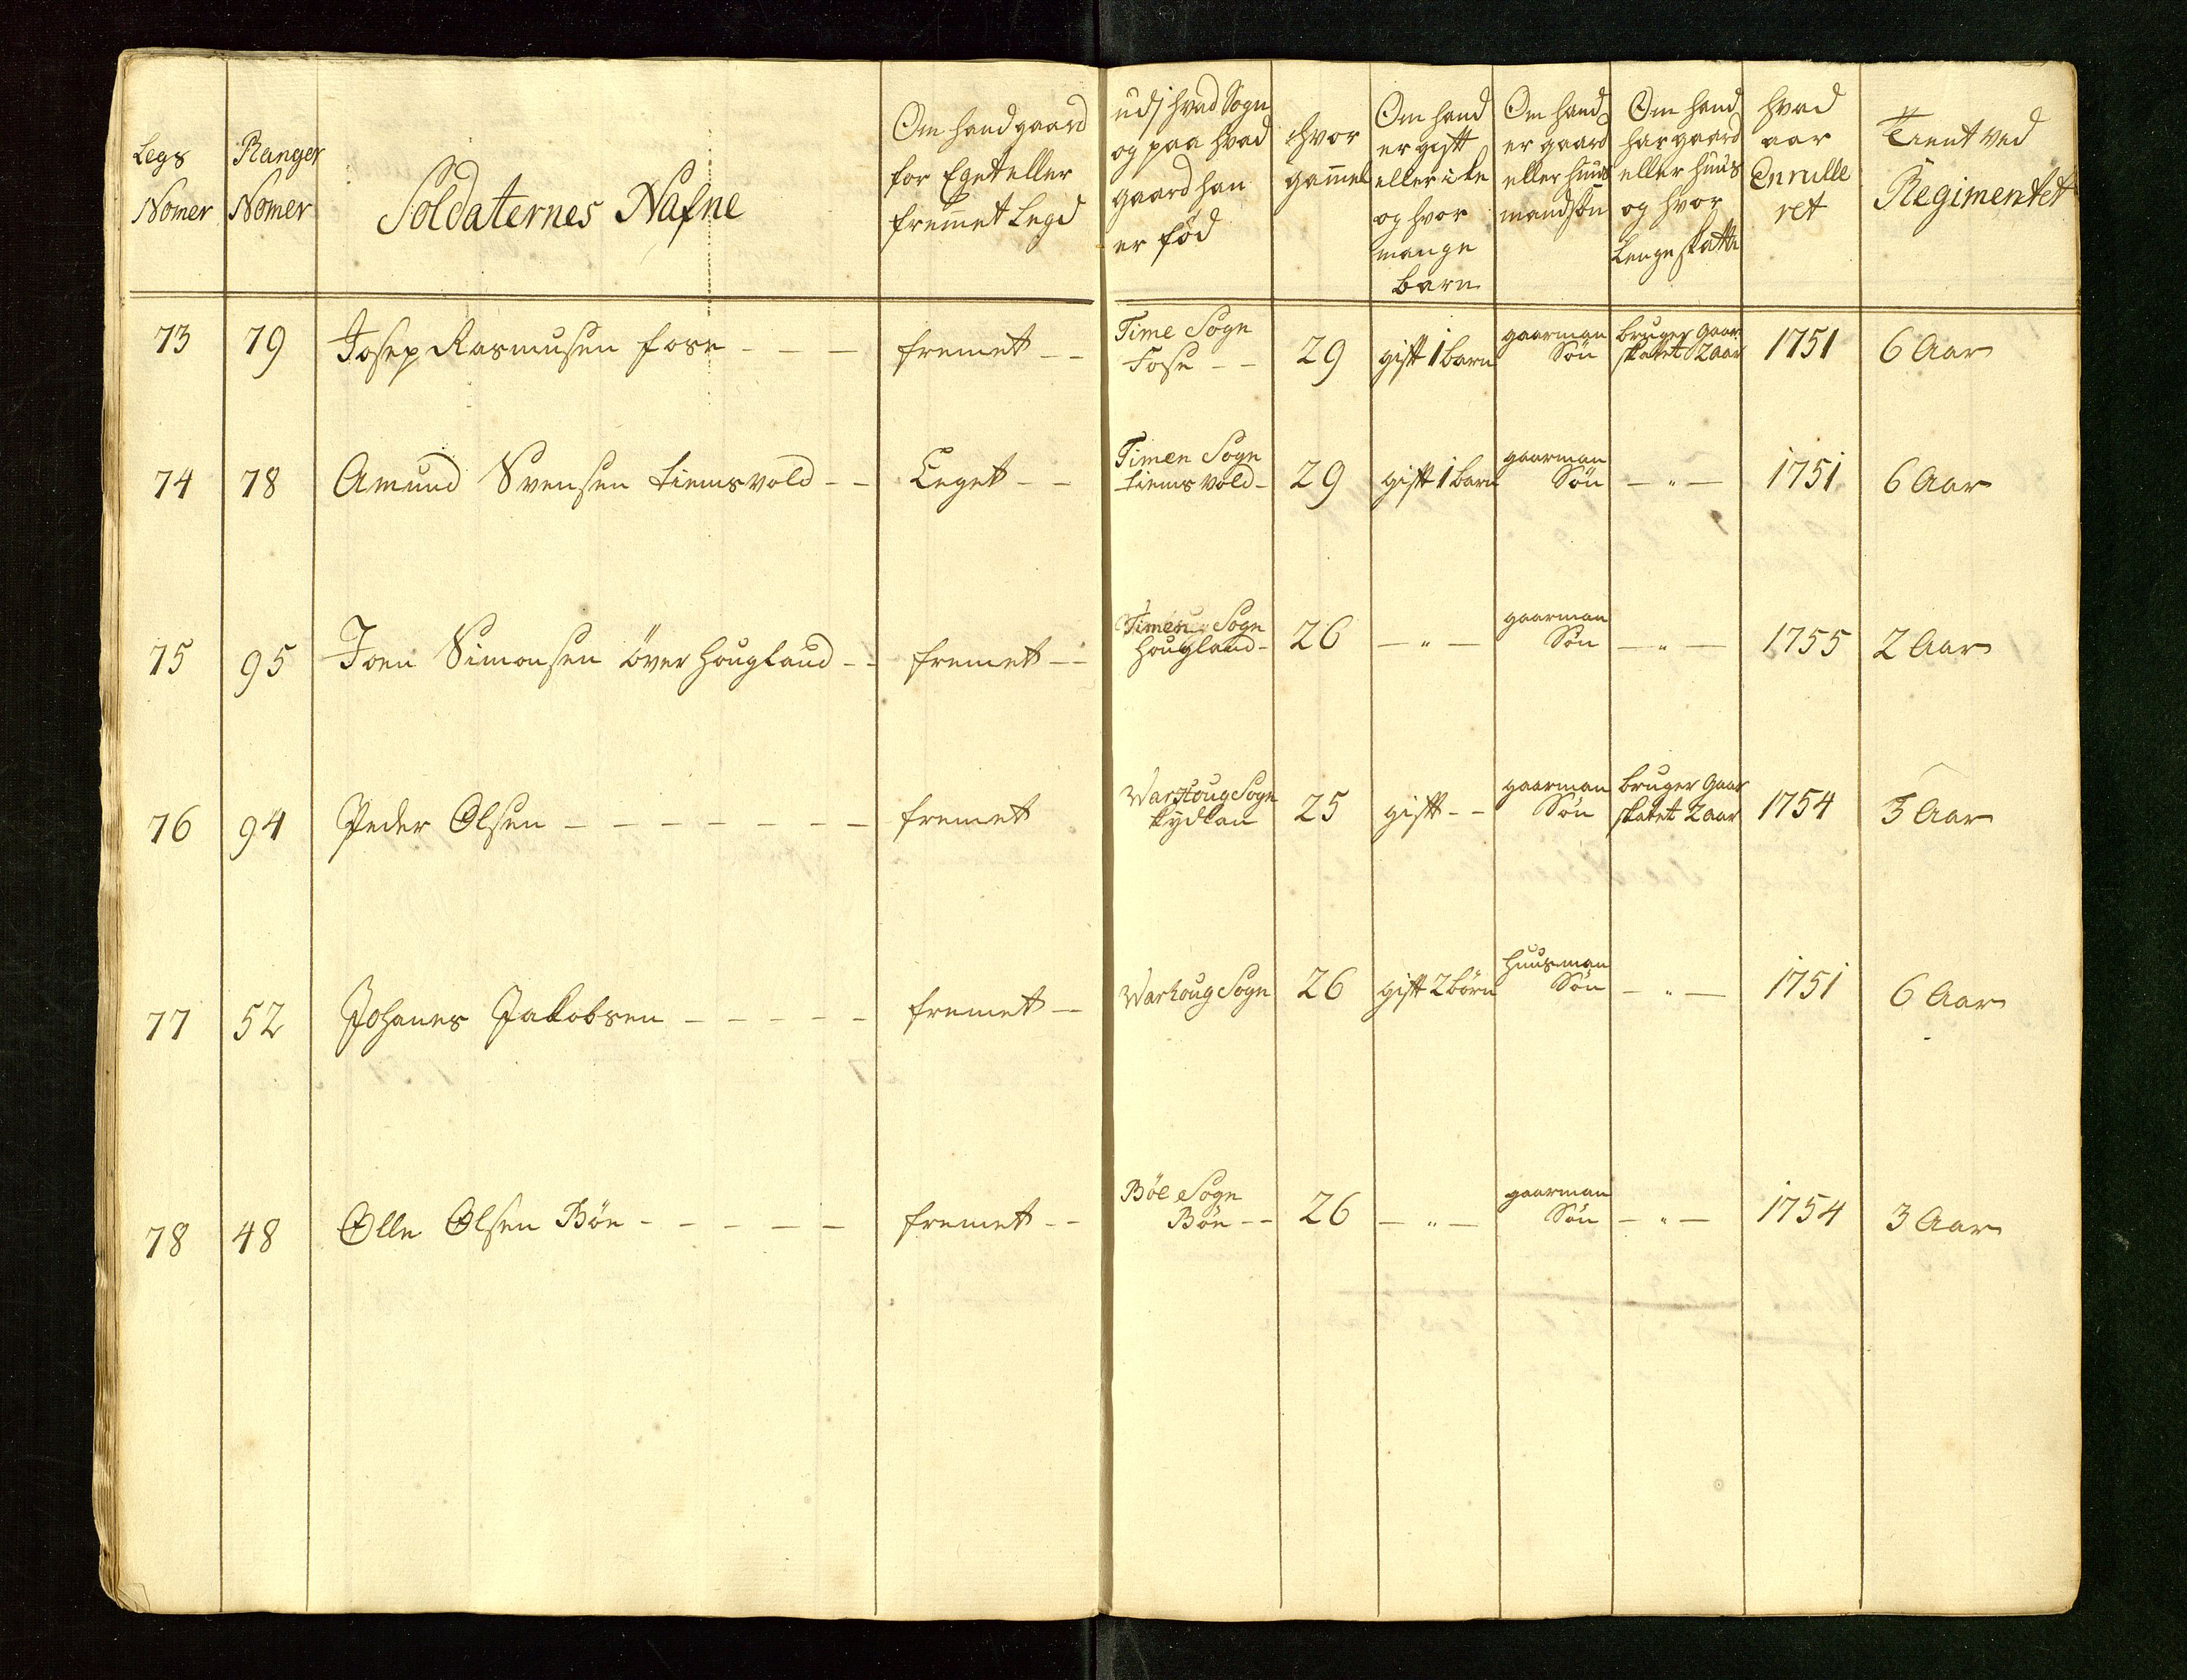 Legs Nomer
Ranger Nomer
Soldaternes Nafne
Om hand gaard for Eget eller fremet Legd
udj hvad Sogn og paa hvad gaard han er fød
hvor gamel
Om hand er gift eller icke og hvor mange barn
Om hand er gaard eller huus mandsøn
Om hand har gaard eller huus og hvor Lenge skatte
hvad aar Enrulle ret
Tient ved Regimentet
73 79 Josep Rasmusen fose - - - fremet - - Time Sogn Fose - - 29 gift 1 barn gaarman Søn bruger Gaar skatet 2 aar 1751 6 Aar
74 78 Amund Svensen tiemsvold - - Eeget - - Timen Sogn tiemsvold - 29 gift 1 barn gaarman Søn - " - 1751 6 Aar
75 95 Joen Simonsen över hougland - - fremet - - Timen Sogn hougland - 26 - " - gaarman Søn - " - 1755 2 Aar
76 94 Peder Olsen - - - - - - - fremet Warhoug Sogn Rydlan 25 gift - - gaarman Søn bruger Gaar skatet 2 aar 1754 3 Aar
77 52 Johanes Jakobsen - - - - - fremet - - Warhoug Sogn 26 gift 2 børn huusman Søn - " - 1751 6 Aar
78 48 Olle Olsen Bön - - - - - fremet - - Böe Sogn Bön - - 26 - " - gaarman Søn - " - 1754 3 Aar